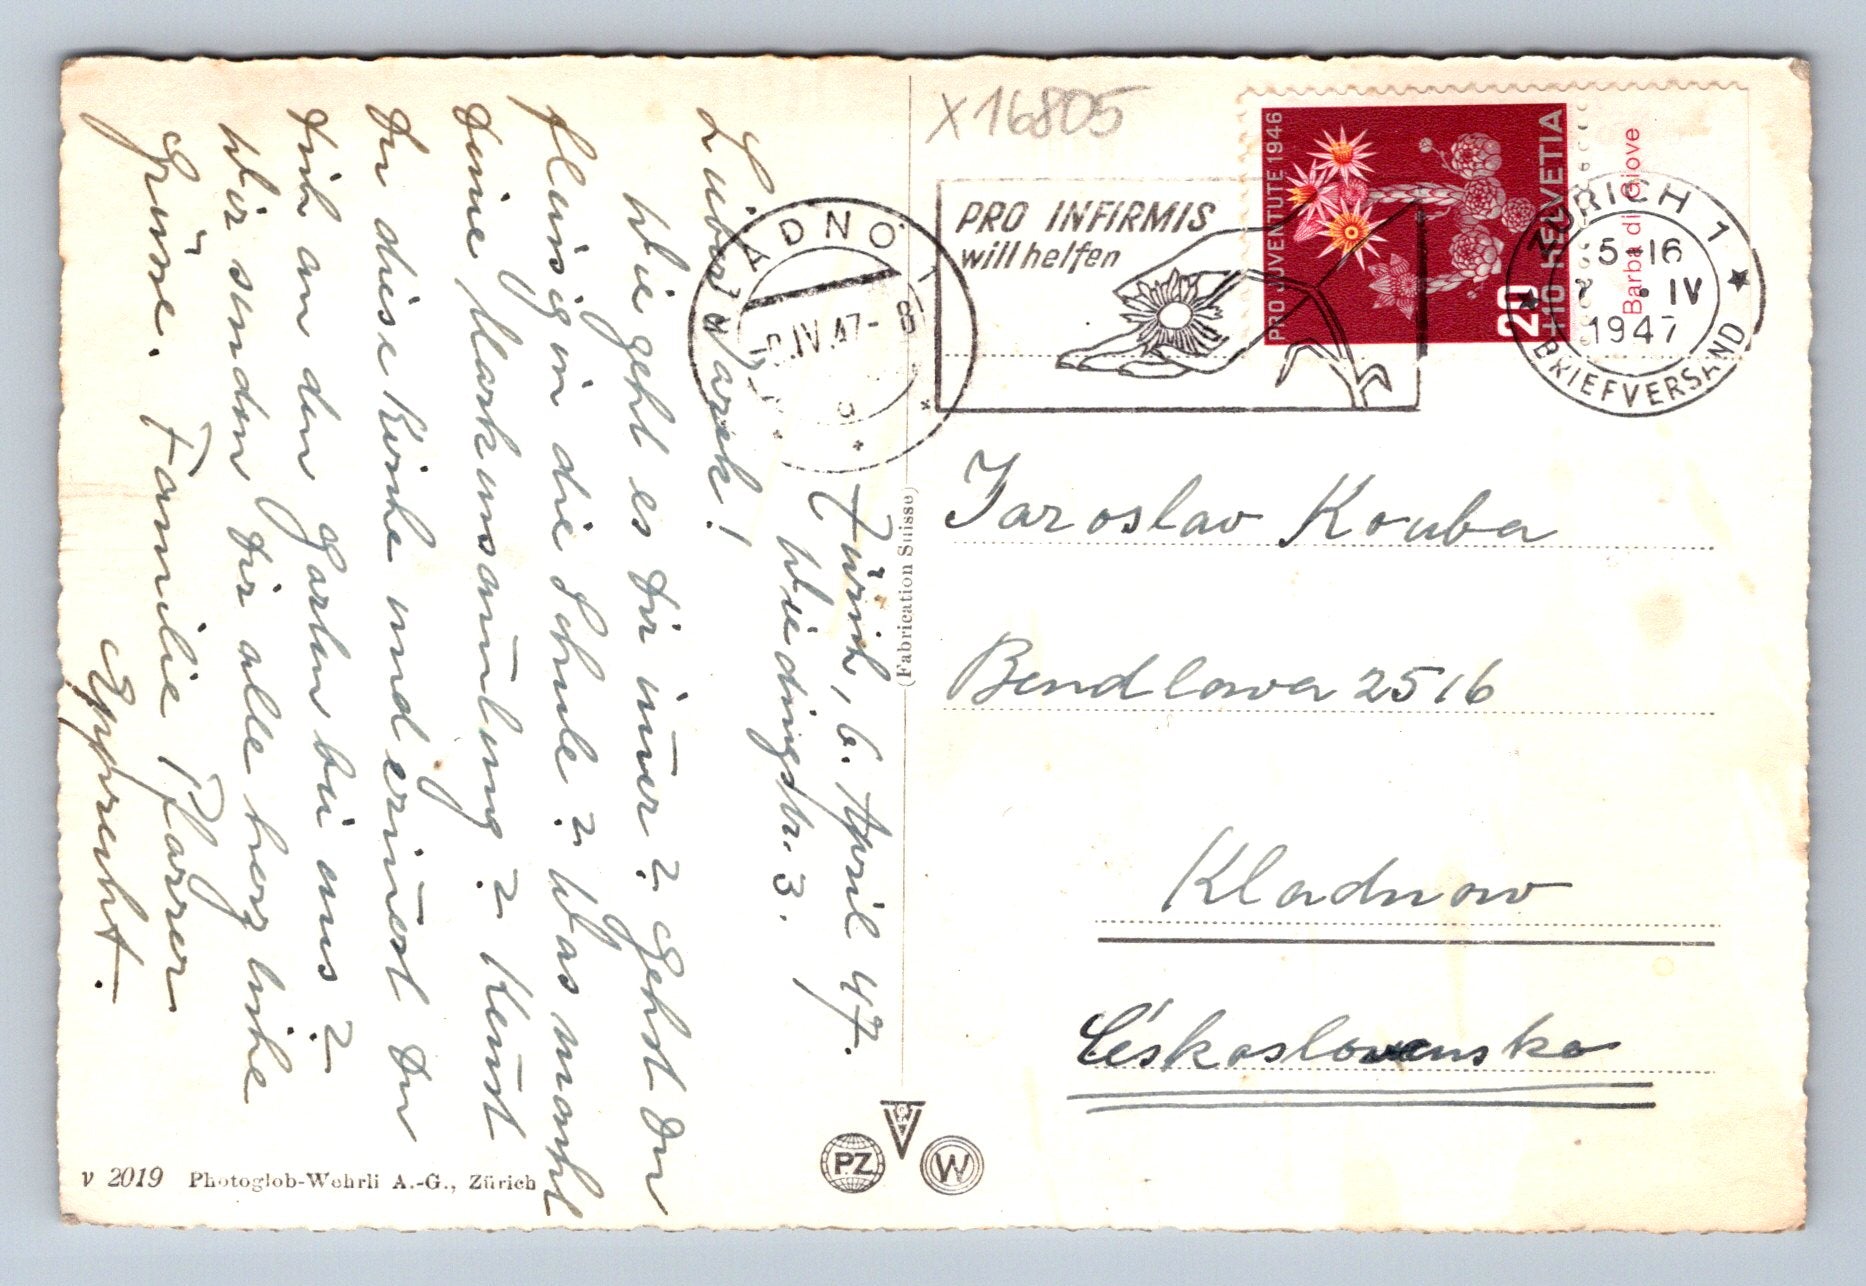 Zürich, 6. April 47.
Wiedingstr. 3.
Lieber Jarek!
Wie geht es Dir im̄er? Gehst Du
fleissig in die Schule? Was macht
Deine Marksam̄lung? Ken̄st
Du diese Kirche und erin̄erst Du
Dich an den Garten bei uns?
Wir senden Dir alle herzliche
Grüsse. Familie Pfarrer
Epprecht.
v 2019 Photoglob-Wehrli A.-G., Zürich
(Fabrication Suisse)
PZ
W
X16805
PRO INFIRMIS
will helfen
PRO JUVENTUTE 1946
HELVETIA
20
Barba di Giove
ZÜRICH 1
15-16
7. IV
1947
BRIEFVERSAND
KLADNO 1
IV.47-8
Jaroslav Kouba
Bendlova 2516
Kladnow
Československo